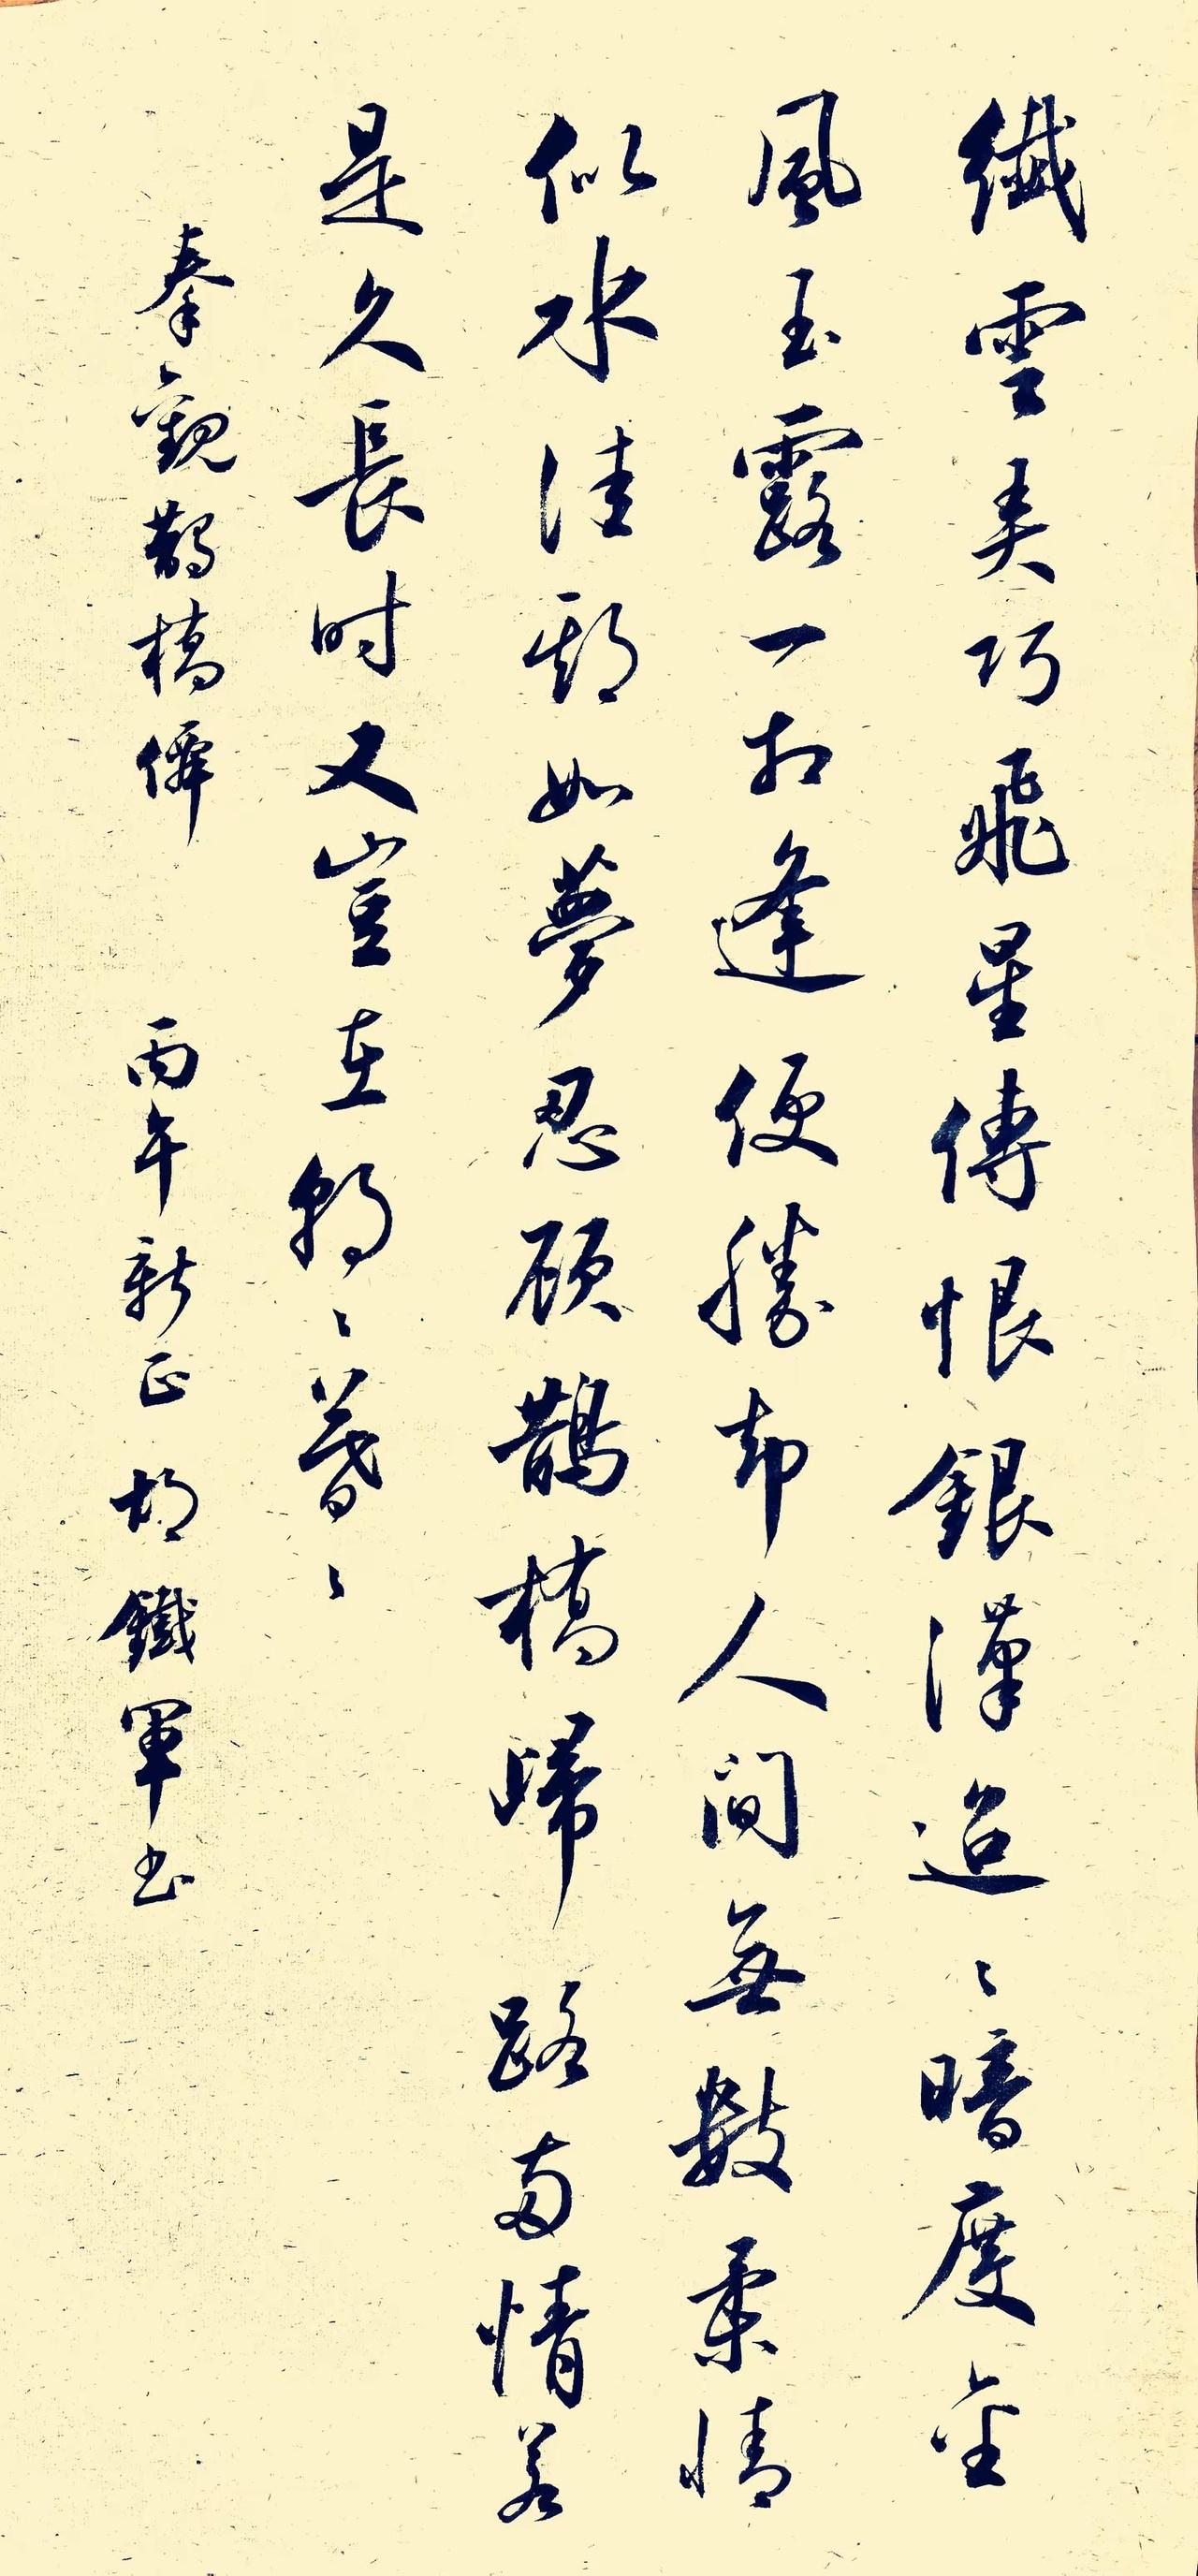 纖雲弄巧飛星傳恨銀漢迢〻暗度金
風玉露一相逢便勝却人间無數柔情
似水佳期如夢忍顧鵲橋歸路兩情若
是久長时又豈在朝〻暮〻
秦觀鵲橋僊 丙午新正 胡鐵軍书